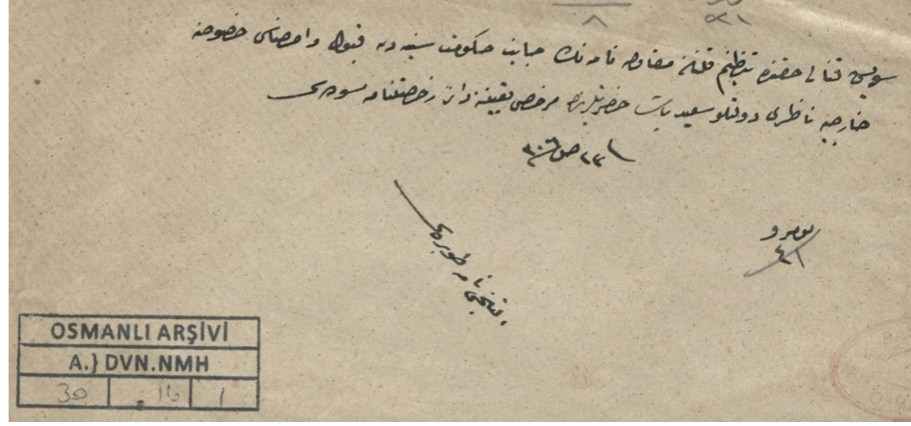 ٨
٥٢١
سويس قنالى حقنده تنظيم قلنان مقاوله نامه نك جانب حكومت سنيه دن قبول و امضاسى خصوصنه
خارجيه ناظرى دولتلو سعيد پاشا حضرتلرينك مرخص تعيننه دائر رخصتنامه مسوده سى
٢٣ ص ٣٠٦
نومرو
٤١
نامه طوبره سى
OSMANLI ARŞİVİ
A.} DVN.NMH
30 . 16 1